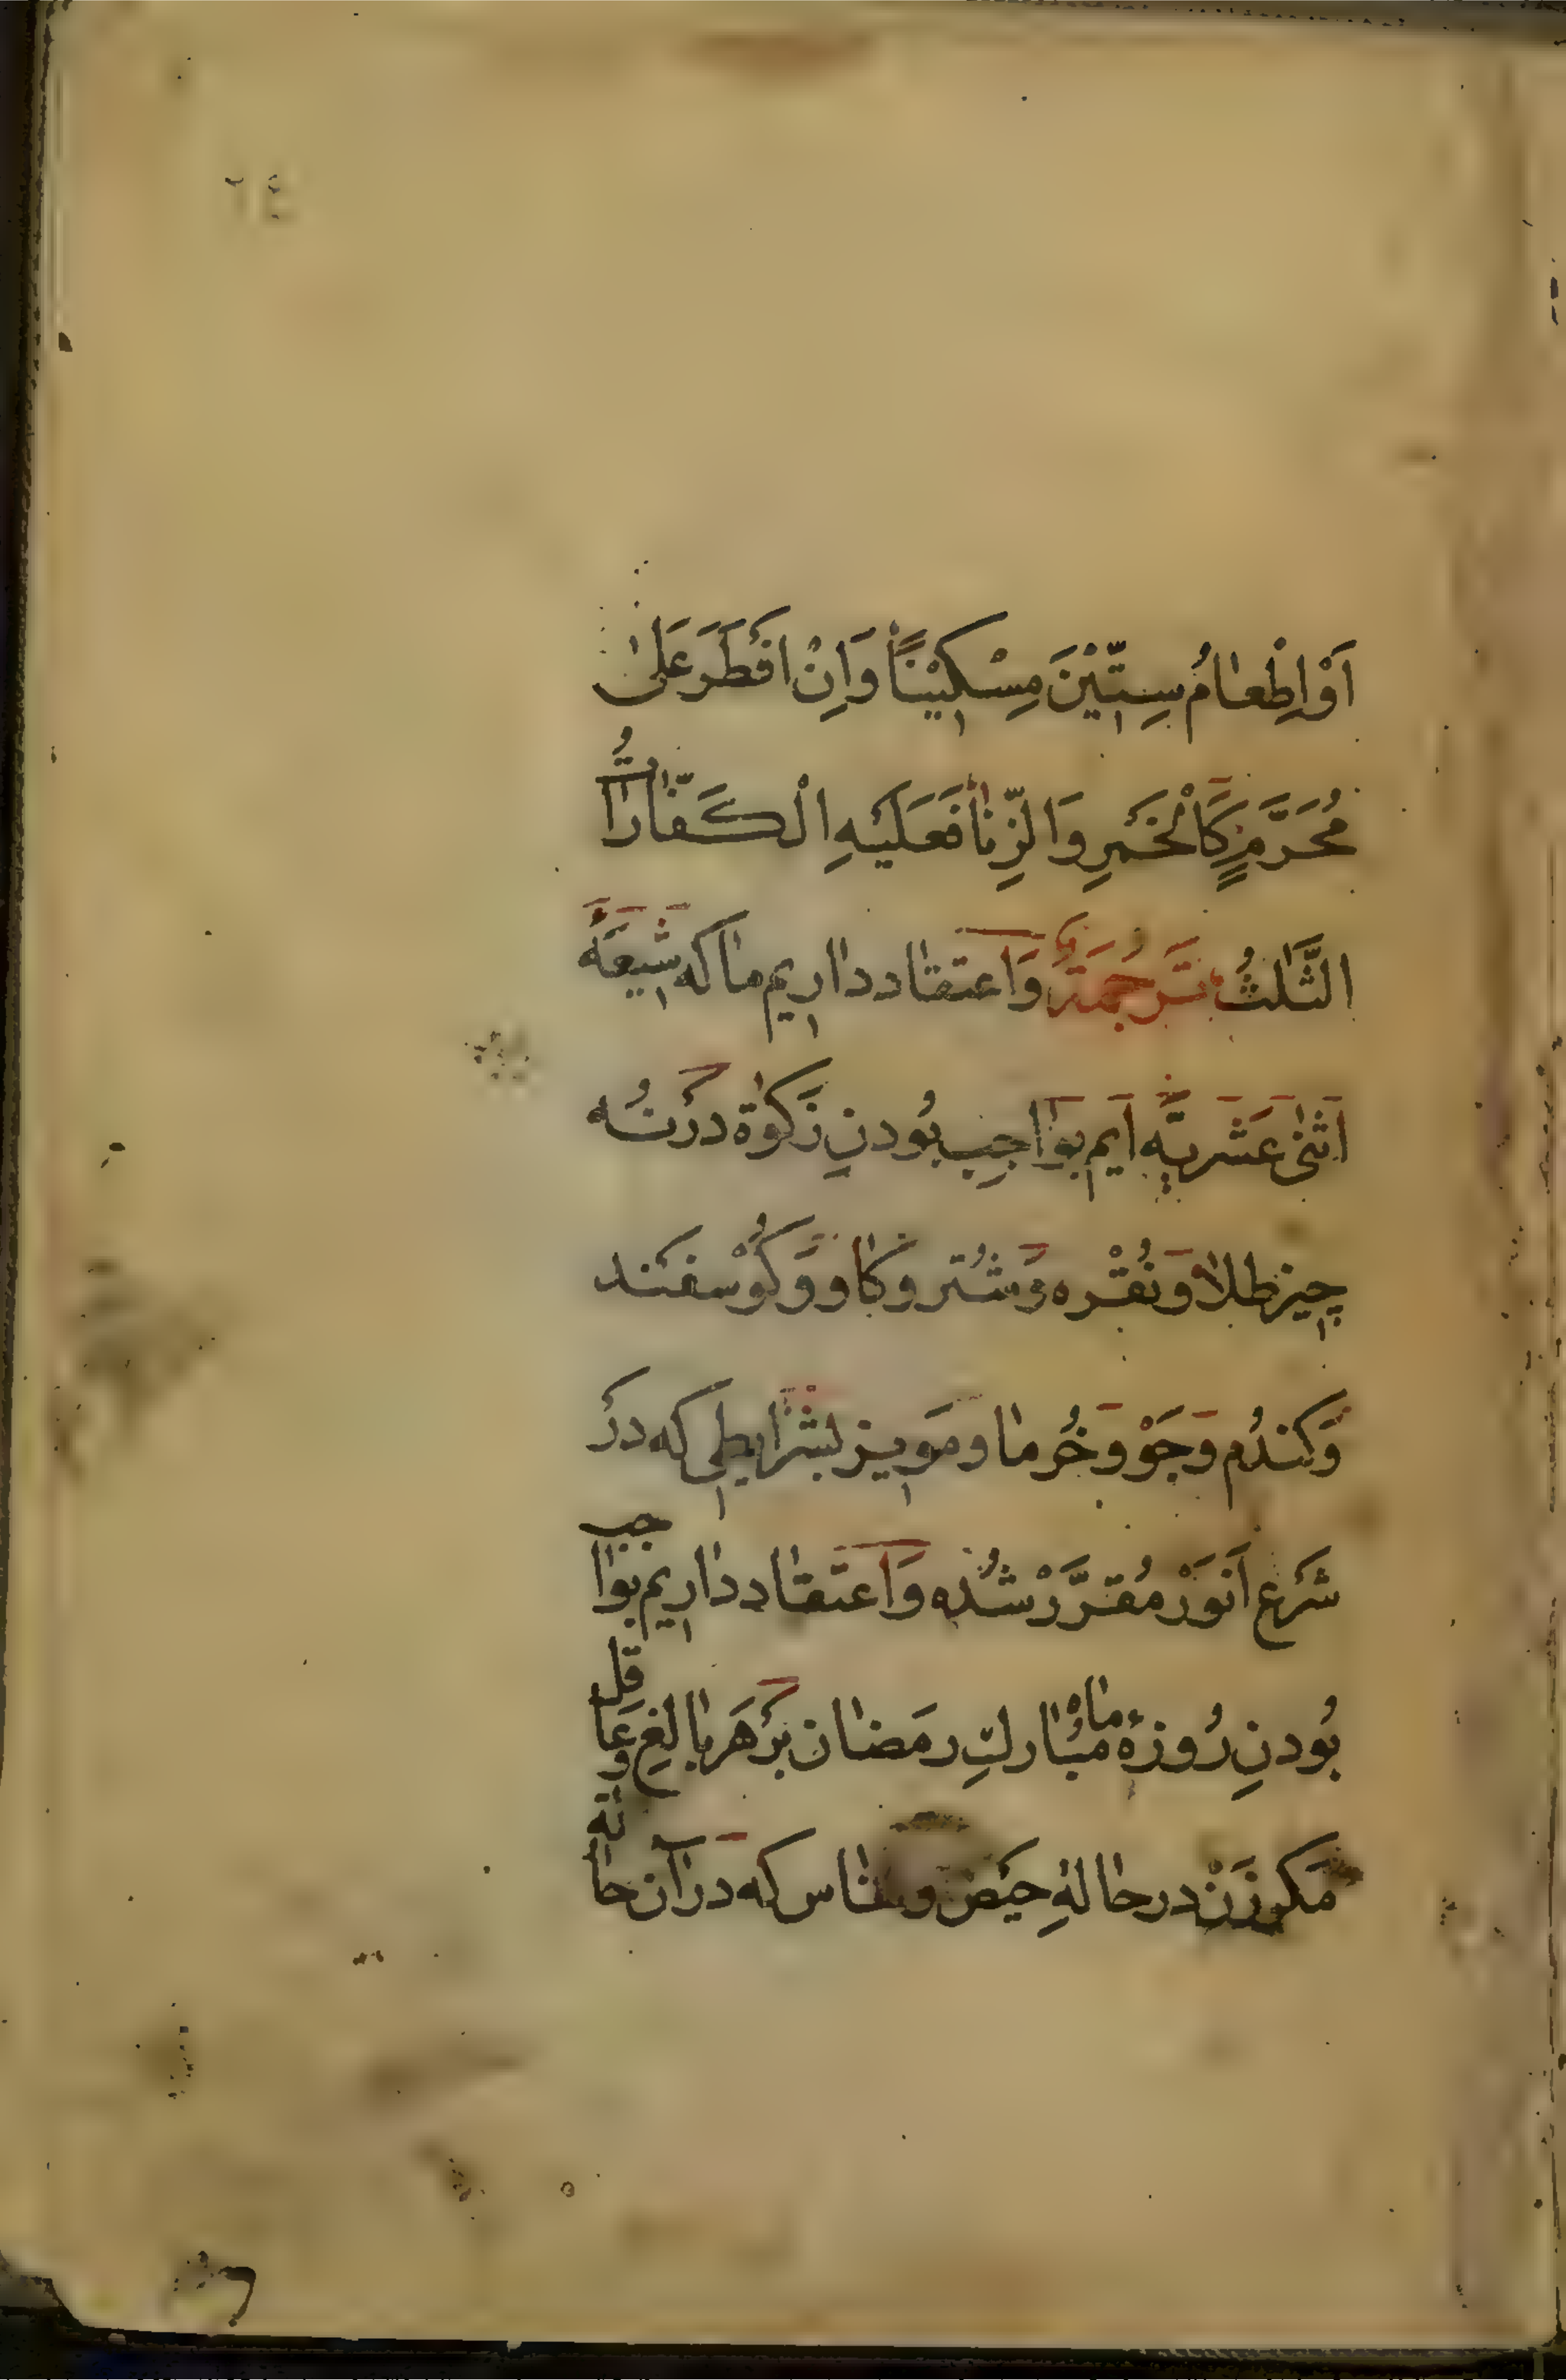 اَوْ اِطْعٰامُ سِتّٖيْنَ مِسْكٖيْنًا وَاِنْ اَفْطَرَ عَلىٰ
مُحَرَّمٍ كَالْخَمْرِ وَالزِّنٰا فَعَلَيْهِ الْكَفّٰارٰاتُ
الثَّلٰثُ تَرْجُمَهٔ وَاعتقٰاد دٰارٖيم مٰا كه شٖيعَهٔ
اَثْنىٰ عَشَريَّهِ اَيم بوٰاجِب بُودنِ زَكوٰة دَرْ نُه
چٖيز طلا وَ نُقْره وَ شُتر و كٰاو وَ كُوْسفَند
وَ كندُم وَ جَوْ وَ خُرمٰا و مَوٖيز بشَرٰايطٖى كه دَرْ
شَرْعِ اَنوَرْ مُقرَّرْ شُدْه وَاعتَقٰاد دٰارٖيم بوٰاجب
بُودنِ رُوزهٔ مٰاه مُبٰاركِ رمَضٰان بَرْ هَر بٰالغِ وَ عٰاقل
مَكر زَنْ در حٰالهٔ حَيْض و نفٰاس كه دَرْ آن حٰا